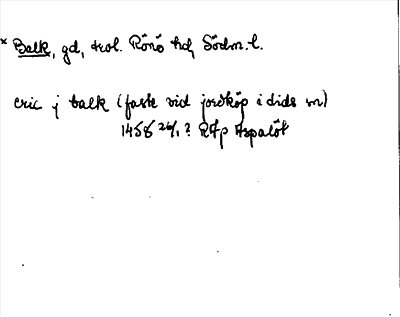 * Balk, gd, trol. Rönö hd, Södm. l.
eric j balk (fast vid jordköp i dids m)
1458 26/1 ? RAp Aspalöt